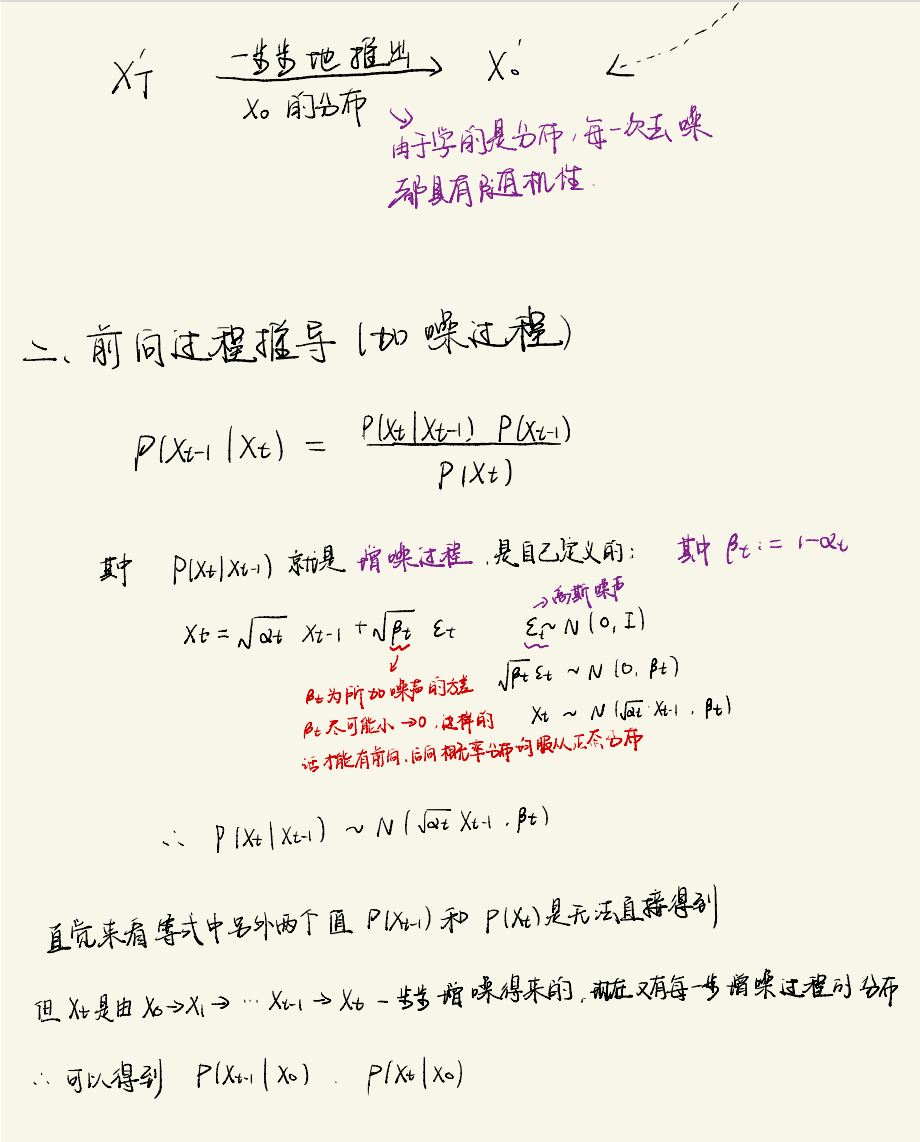 X'_T 一步步地推出 X_0'
X_0 的分布
由于学的是分布，每一次去噪
都具有随机性.
二、前向过程推导（加噪过程）
P(X_{t-1} | X_t) = \frac{P(X_t | X_{t-1}) P(X_{t-1})}{P(X_t)}
其中 P(X_t | X_{t-1}) 就是 增噪过程，是自己定义的： 其中 β_t := 1-α_t
→高斯噪声
X_t = \sqrt{α_t} X_{t-1} + \sqrt{β_t} ε_t ε_t ~ N(0, I)
\sqrt{β_t} ε_t ~ N(0, β_t)
β_t 为所加噪声的方差
X_t ~ N(\sqrt{α_t} X_{t-1}, β_t)
β_t 尽可能小→0，这样的
话才能有前向、后向概率分布均服从正态分布
∴ P(X_t | X_{t-1}) ~ N(\sqrt{α_t} X_{t-1}, β_t)
直觉来看等式中另外两个值 P(X_{t-1}) 和 P(X_t) 是无法直接得到
但 X_t 是由 X_0→X_1→ ··· X_{t-1}→X_t 一步步增噪得来的，现在又有每一步增噪过程的分布
∴ 可以得到 P(X_{t-1} | X_0) . P(X_t | X_0)